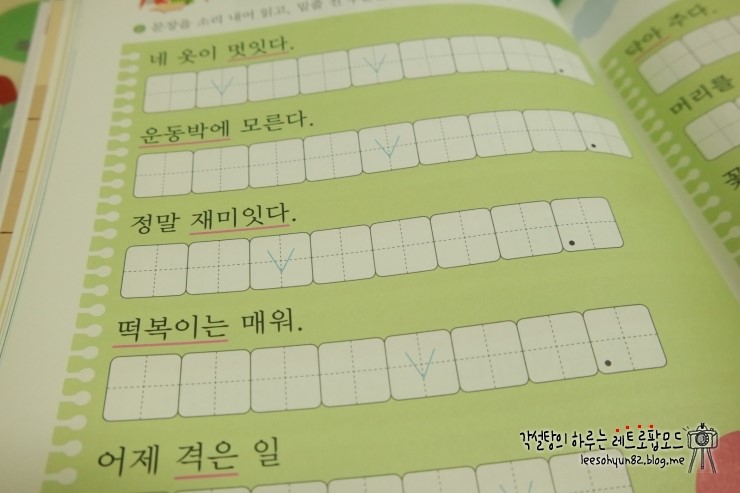 문장을 소리 내어 읽고, 밑줄
네 옷이 멋잇다.
운동박에 모른다.
정말 재미잇다.
떡복이는 매워.
어제 격은 일
닥아 주다.
머리를
각설탕의 하루는 레트로팝모드
leesohyun82.blog.me